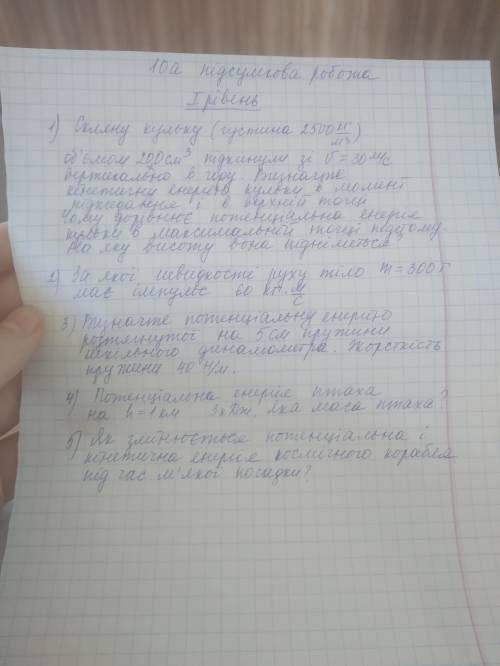 10а підсумкова робота
I рівень
1) Скляну кульку (густина 2500 кг/м3)
об'ємом 200 см³ підкинули зі V = 30 м/с
вертикально в гору. Визначте
кінетичну енергію кульки в момент
підкидання і в верхній точці
Чому дорівнює потенціальна енергія
кульки в максимальній точці підйому.
На яку висоту вона підніметься
2) За якої швидкості руху тіло m = 300 г
має імпульс 60 кг · м/с
3) Визначте потенціальну енергію
розтягнутої на 5 см пружини
шкільного динамометра. Жорсткість
пружини 40 Н/м.
4) Потенціальна енергія птаха
на h = 1 км 3 кДж. Яка маса птаха?
5) Як змінюється потенціальна і
кінетична енергія космічного корабля
під час м'якої посадки?